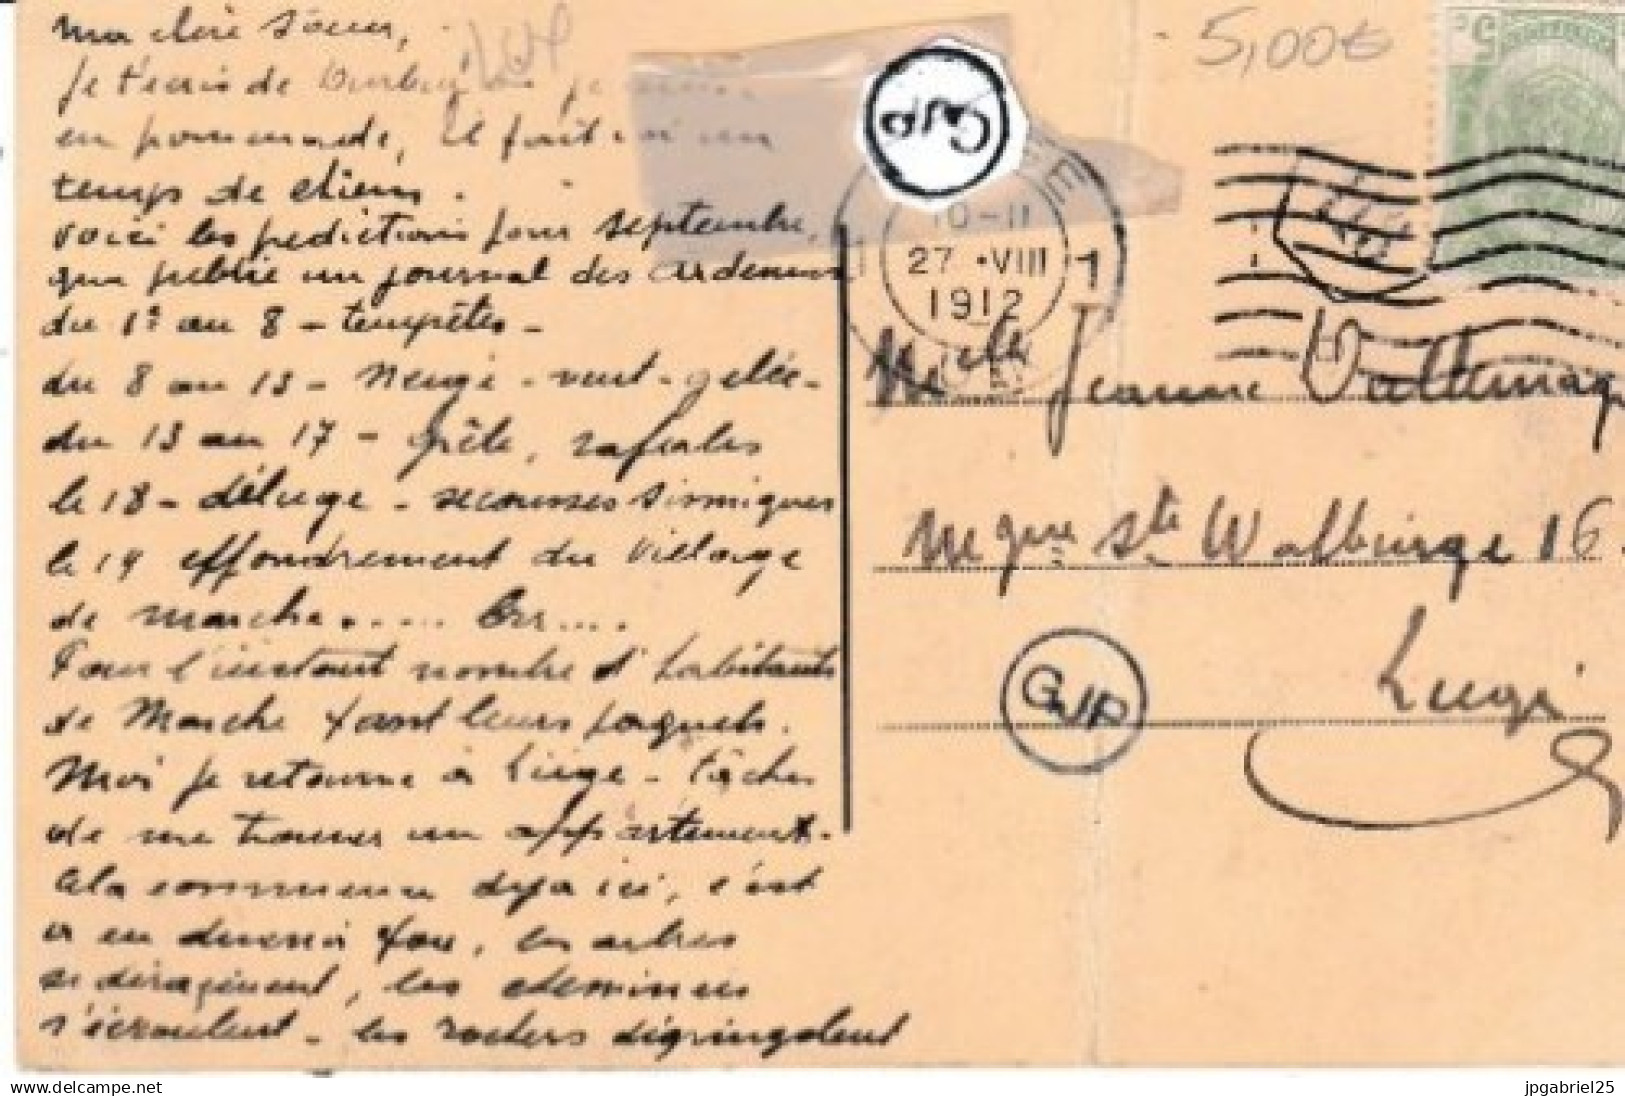 Ma chère sœur,
Je t'écris de Durbuy
en promenade, il fait ici un
temps de chien.
Voici les prédictions pour septembre,
que publie un journal des Ardennes
du 1er au 8 - tempêtes -
du 8 au 13 - Neige - vent - gelée -
du 13 au 17 - grêle, rafales
le 18 - déluge - secousses sismiques
le 19 effondrement du village
de Marche..... Brr....
Pour l'instant nombre d'habitants
de Marche font leurs paquets.
Moi je retourne à Liège - tâchez
de me trouver un appartement.
Cela commence déjà ici, c'est
à en devenir fou, les arbres
se déracinent, les cheminées
s'écroulent - les rochers dégringolent
5,00€
5 c
GJP
10-11
27 • VIII
1912
1
E
Melle Jeanne
Ste Walburge 16
Liège
GJP
www.delcampe.net
jpgabriel25